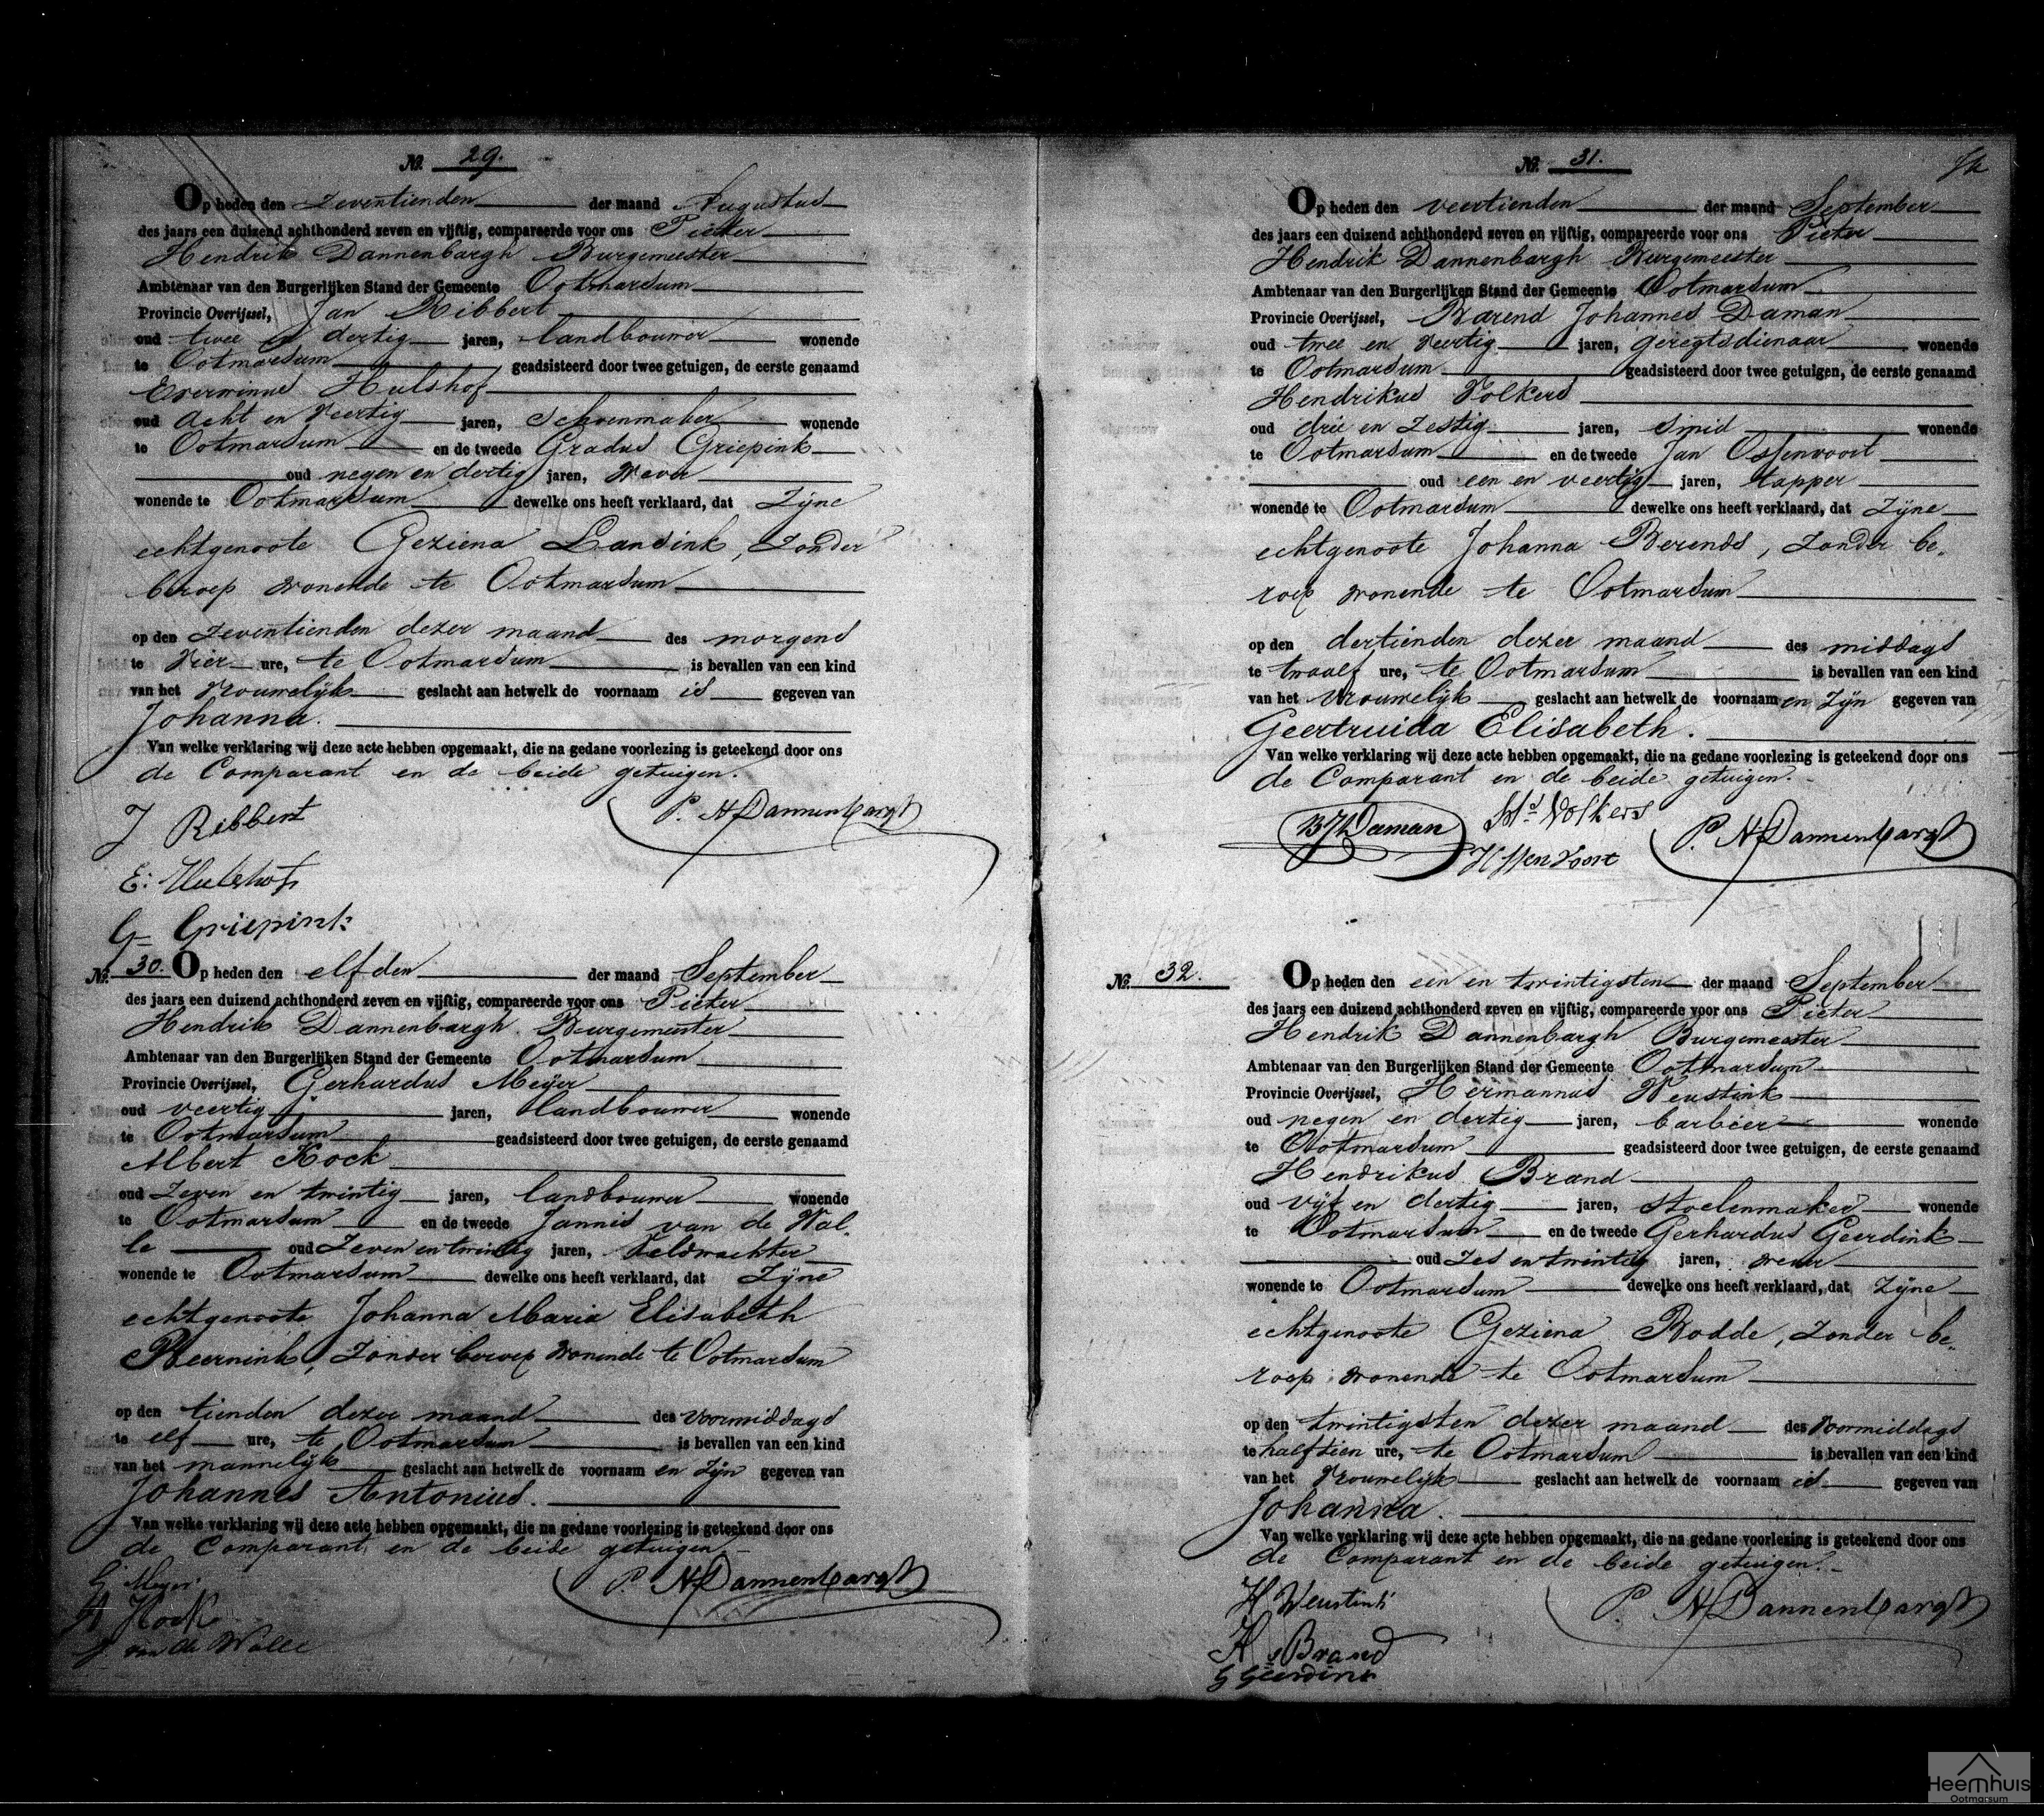 No. 29.
Op heden den zeventienden der maand Augustus
des jaars een duizend achthonderd zeven en vijftig, compareerde voor ons Pieter
Hendrik Dannenbargh Burgemeester
Ambtenaar van den Burgerlijken Stand der Gemeente Ootmarsum
Provincie Overijssel, Jan Ribbert
oud twee en dertig jaren, landbouwer wonende
te Ootmarsum geadsisteerd door twee getuigen, de eerste genaamd
Everwinus Hulshof
oud acht en veertig jaren, Schoenmaker wonende
te Ootmarsum en de tweede Gradus Griepink
oud negen en dertig jaren, wever
wonende te Ootmarsum dewelke ons heeft verklaard, dat zijne
echtgenoote Geziena Lansink, zonder
beroep wonende te Ootmarsum
op den zeventienden dezer maand des morgens
te vier ure, te Ootmarsum is bevallen van een kind
van het vrouwelijk geslacht aan hetwelk de voornaam is gegeven van
Johanna.
Van welke verklaring wij deze acte hebben opgemaakt, die na gedane voorlezing is geteekend door ons
de Comparant en de beide getuigen.
J Ribbert P. H Dannenbargh
E: Hulshof
G Griepink
No. 30. Op heden den elfden der maand September
des jaars een duizend achthonderd zeven en vijftig, compareerde voor ons Pieter
Hendrik Dannenbargh Burgemeester
Ambtenaar van den Burgerlijken Stand der Gemeente Ootmarsum
Provincie Overijssel, Gerhardus Meijer
oud veertig jaren, landbouwer wonende
te Ootmarsum geadsisteerd door twee getuigen, de eerste genaamd
Albert Kock
oud zeven en twintig jaren, landbouwer wonende
te Ootmarsum en de tweede Jannis van de Wal-
le oud zeven en twintig jaren, veldwachter
wonende te Ootmarsum dewelke ons heeft verklaard, dat zijne
echtgenoote Johanna Maria Elisabeth
Reernink, zonder beroep wonende te Ootmarsum
op den tienden dezer maand des voormiddags
te elf ure, te Ootmarsum is bevallen van een kind
van het mannelijk geslacht aan hetwelk de voornaam en zijn gegeven van
Johannes Antonius.
Van welke verklaring wij deze acte hebben opgemaakt, die na gedane voorlezing is geteekend door ons
de Comparant en de beide getuigen.
G Meijer P. H Dannenbargh
A Kock
J van de Walle
No. 31.
Op heden den veertienden der maand September
des jaars een duizend achthonderd zeven en vijftig, compareerde voor ons Pieter
Hendrik Dannenbargh Burgemeester
Ambtenaar van den Burgerlijken Stand der Gemeente Ootmarsum
Provincie Overijssel, Barend Johannes Daman
oud twee en veertig jaren, geregtsdienaar wonende
te Ootmarsum geadsisteerd door twee getuigen, de eerste genaamd
Hendrikus Volkers
oud drie en zestig jaren, smid wonende
te Ootmarsum en de tweede Jan Ossenvoort
oud een en veertig jaren, tapper
wonende te Ootmarsum dewelke ons heeft verklaard, dat zijne
echtgenoote Johanna Berends, zonder be-
roep wonende te Ootmarsum
op den dertienden dezer maand des middags
te twaalf ure, te Ootmarsum is bevallen van een kind
van het vrouwelijk geslacht aan hetwelk de voornaam en zijn gegeven van
Geertruida Elisabeth.
Van welke verklaring wij deze acte hebben opgemaakt, die na gedane voorlezing is geteekend door ons
de Comparant en de beide getuigen.
Daman Volkers P. H Dannenbargh
No. 32. Op heden den een en twintigsten der maand September
des jaars een duizend achthonderd zeven en vijftig, compareerde voor ons Pieter
Hendrik Dannenbargh Burgemeester
Ambtenaar van den Burgerlijken Stand der Gemeente Ootmarsum
Provincie Overijssel, Hermannus Weustink
oud negen en dertig jaren, barbier wonende
te Ootmarsum geadsisteerd door twee getuigen, de eerste genaamd
Hendrikus Brand
oud vijf en dertig jaren, stoelenmaker wonende
te Ootmarsum en de tweede Gerhardus Geerdink
oud zes en twintig jaren, wever
wonende te Ootmarsum dewelke ons heeft verklaard, dat zijne
echtgenoote Geziena Bodde, zonder be-
roep wonende te Ootmarsum
op den twintigsten dezer maand des voormiddags
te half tien ure, te Ootmarsum is bevallen van een kind
van het vrouwelijk geslacht aan hetwelk de voornaam is gegeven van
Johanna.
Van welke verklaring wij deze acte hebben opgemaakt, die na gedane voorlezing is geteekend door ons
de Comparant en de beide getuigen.
H Weustink P. H Dannenbargh
H Brand
G Geerdink
Heemhuis
Ootmarsum